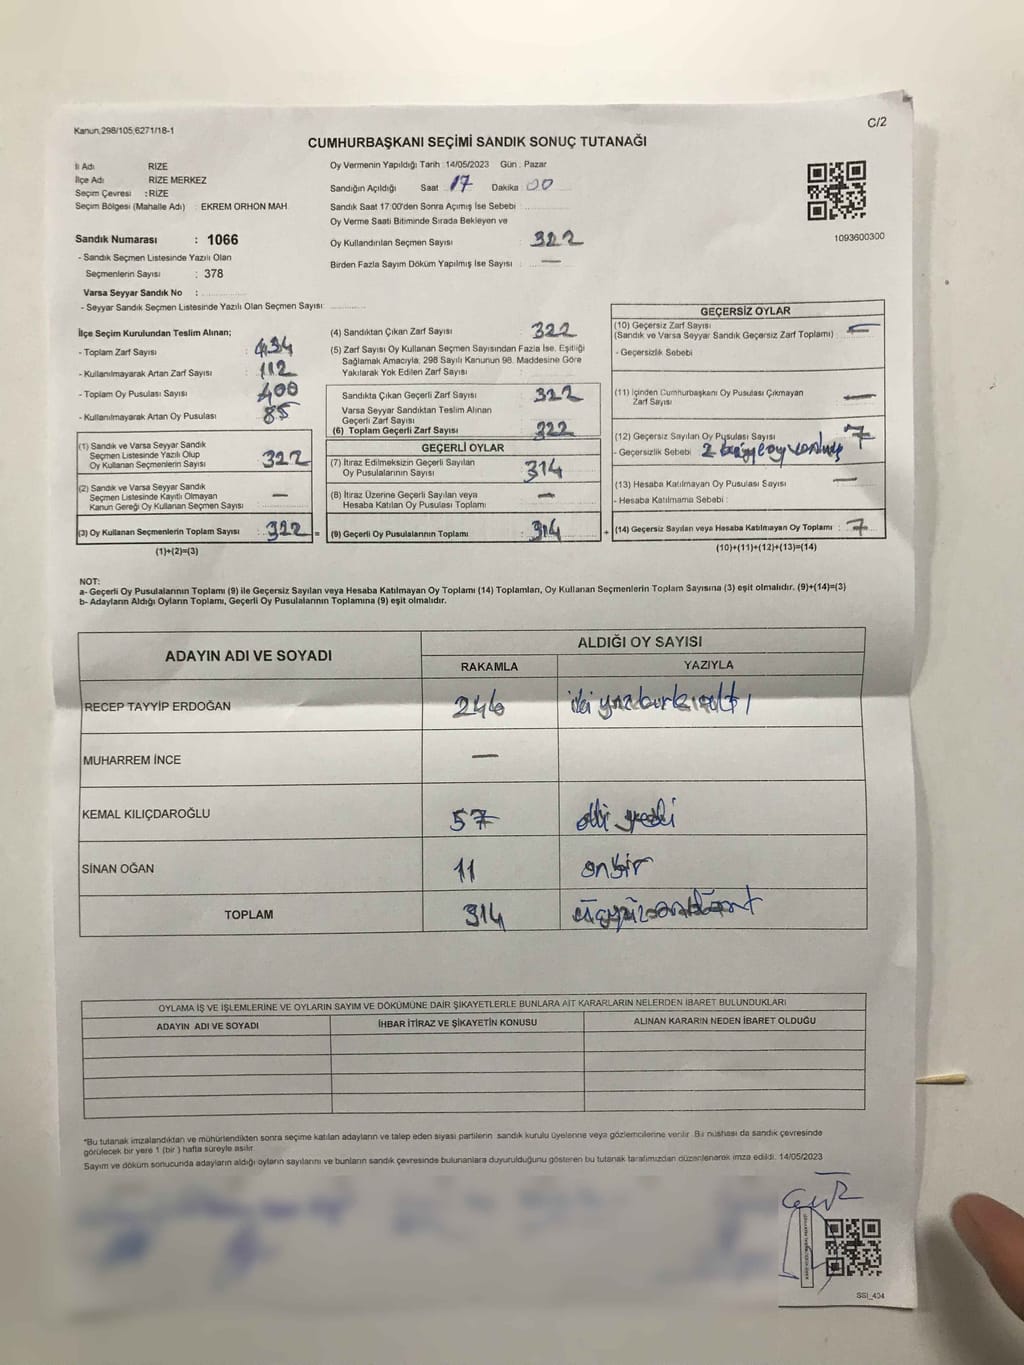 Kanun,298/105,6271/18-1
C/2
CUMHURBAŞKANI SEÇİMİ SANDIK SONUÇ TUTANAĞI
İl Adı RİZE
İlçe Adı RİZE MERKEZ
Seçim Çevresi : RİZE
Seçim Bölgesi (Mahalle Adı) : EKREM ORHON MAH.
Sandık Numarası : 1066
- Sandık Seçmen Listesinde Yazılı Olan
Seçmenlerin Sayısı : 378
Varsa Seyyar Sandık No :
- Seyyar Sandık Seçmen Listesinde Yazılı Olan Seçmen Sayısı:
Oy Vermenin Yapıldığı Tarih : 14/05/2023 Gün : Pazar
Sandığın Açıldığı Saat 17 Dakika 00
Sandık Saat 17:00'den Sonra Açımış İse Sebebi :
Oy Verme Saati Bitiminde Sırada Bekleyen ve
Oy Kullandırılan Seçmen Sayısı : 322
Birden Fazla Sayım Döküm Yapılmış İse Sayısı : —
1093600300
İlçe Seçim Kurulundan Teslim Alınan;
- Toplam Zarf Sayısı : 434
- Kullanılmayarak Artan Zarf Sayısı : 112
- Toplam Oy Pusulası Sayısı : 400
- Kullanılmayarak Artan Oy Pusulası : 85
(1) Sandık ve Varsa Seyyar Sandık
Seçmen Listesinde Yazılı Olup
Oy Kullanan Seçmenlerin Sayısı : 322
(2) Sandık ve Varsa Seyyar Sandık
Seçmen Listesinde Kayıtlı Olmayan
Kanun Gereği Oy Kullanan Seçmen Sayısı : —
(3) Oy Kullanan Seçmenlerin Toplam Sayısı : 322 =
(1)+(2)=(3)
(4) Sandıktan Çıkan Zarf Sayısı : 322
(5) Zarf Sayısı Oy Kullanan Seçmen Sayısından Fazla İse, Eşitliği
Sağlamak Amacıyla, 298 Sayılı Kanunun 98. Maddesine Göre
Yakılarak Yok Edilen Zarf Sayısı :
Sandıkta Çıkan Geçerli Zarf Sayısı : 322
Varsa Seyyar Sandıktan Teslim Alınan
Geçerli Zarf Sayısı :
(6) Toplam Geçerli Zarf Sayısı : 322
GEÇERLİ OYLAR
(7) İtiraz Edilmeksizin Geçerli Sayılan
Oy Pusulasının Sayısı : 314
(8) İtiraz Üzerine Geçerli Sayılan veya
Hesaba Katılan Oy Pusulası Toplamı : —
(9) Geçerli Oy Pusulalarının Toplamı : 314 +
GEÇERSİZ OYLAR
(10) Geçersiz Zarf Sayısı
(Sandık ve Varsa Seyyar Sandık Geçersiz Zarf Toplamı) : —
- Geçersizlik Sebebi :
(11) İçinden Cumhurbaşkanı Oy Pusulası Çıkmayan
Zarf Sayısı : —
(12) Geçersiz Sayılan Oy Pusulası Sayısı : 7
- Geçersizlik Sebebi : 2
(13) Hesaba Katılmayan Oy Pusulası Sayısı : —
- Hesaba Katılmama Sebebi :
(14) Geçersiz Sayılan veya Hesaba Katılmayan Oy Toplamı : 7
(10)+(11)+(12)+(13)=(14)
NOT:
a- Geçerli Oy Pusulalarının Toplamı (9) ile Geçersiz Sayılan veya Hesaba Katılmayan Oy Toplamı (14) Toplamları, Oy Kullanan Seçmenlerin Toplam Sayısına (3) eşit olmalıdır. (9)+(14)=(3)
b- Adayların Aldığı Oyların Toplamı, Geçerli Oy Pusulalarının Toplamına (9) eşit olmalıdır.
ADAYIN ADI VE SOYADI ALDIĞI OY SAYISI
RAKAMLA YAZIYLA
RECEP TAYYİP ERDOĞAN 246
MUHARREM İNCE —
KEMAL KILIÇDAROĞLU 57 elli yedi
SİNAN OĞAN 11 onbir
TOPLAM 314 üçyüzondört
OYLAMA İŞ VE İŞLEMLERİNE VE OYLARIN SAYIM VE DÖKÜMÜNE DAİR ŞİKAYETLERLE BUNLARA AİT KARARLARIN NELERDEN İBARET BULUNDUKLARI
ADAYIN ADI VE SOYADI İHBAR İTİRAZ VE ŞİKAYETİN KONUSU ALINAN KARARIN NEDEN İBARET OLDUĞU
*Bu tutanak imzalandıktan ve mühürlendikten sonra seçime katılan adayların ve talep eden siyasi partilerin sandık kurulu üyelerine veya gözlemcilerine verilir. Bir nüshası da sandık çevresinde
görülecek bir yere 1 (bir) hafta süreyle asılır.
Sayım ve döküm sonucunda adayların aldığı oyların sayılarını ve bunların sandık çevresinde bulunanlara duyurulduğunu gösteren bu tutanak tarafımızdan düzenlenerek imza edildi. 14/05/2023
SSI_404